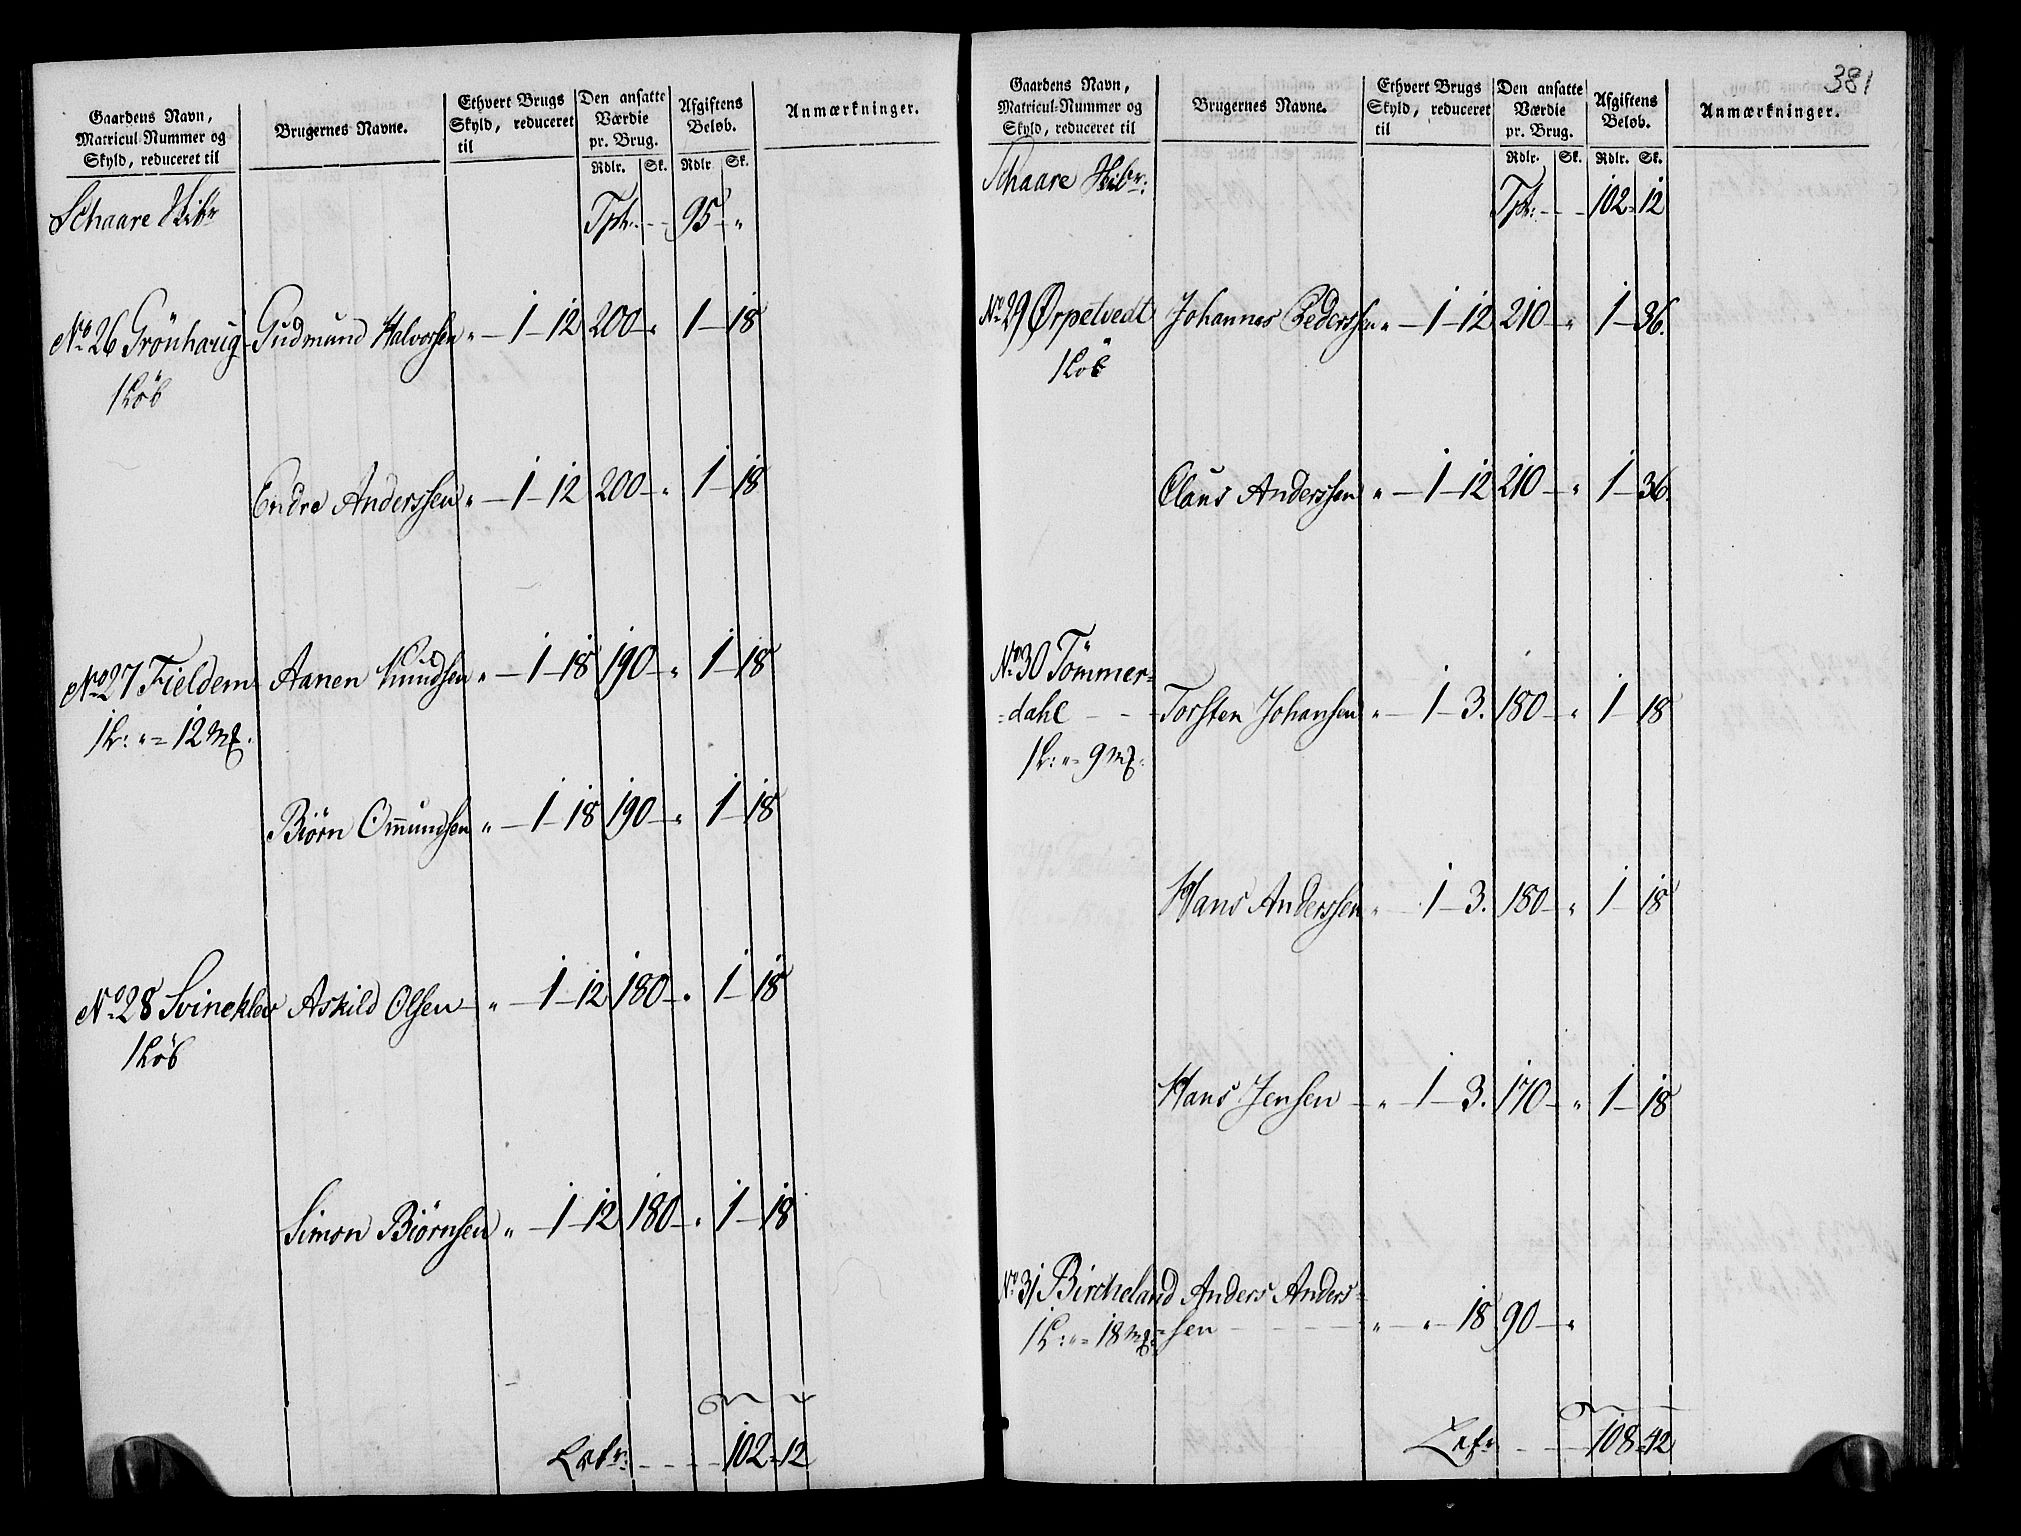 Gaardens Navn,
Matricul-Nummer og
Skyld, reduceret til
Brugernes Navne.
Ethvert Brugs
Skyld, reduceret
til
Den ansatte
Værdie
pr. Brug.
Rdlr. Sk.
Afgiftens
Beløb.
Rdlr Sk.
Anmærkninger.
Schaare Skibr Tpt: - - 95 - "
No 26 Grönhaug Gudmund Halvorsen " - 1 - 12 200 - " 1 - 18
1 Löb
Endre Anderssen " - 1 - 12 200 - " 1 - 18
No 27 Fieldem Aanen Knudsen " - 1 - 18 190 - " 1 - 18
1 L: " = 12 mk.
Biørn Omundsen " - 1 - 18 190 - " 1 - 18
No 28 Svineklev Askild Olsen " - 1 - 12 180 - " 1 - 18
1 Löb
Simon Biørnsen " - 1 - 12 180 - " 1 - 18
Latr: - - - - 102 - 12
381
Gaardens Navn,
Matricul-Nummer og
Skyld, reduceret til
Brugernes Navne.
Ethvert Brugs
Skyld, reduceret
til
Den ansatte
Værdie
pr. Brug.
Rdlr. Sk.
Afgiftens
Beløb.
Rdlr. Sk.
Anmærkninger.
Schaare Skibr: Tpt: - - 102 - 12
No 29 Ørpetvedt Johannes Pederssen " - 1 - 12 210 - " 1 - 36.
1 Löb
Claus Anderssen " - 1 - 12 210 - " 1 - 36.
No 30 Tömmer=
=dahl - - Torsten Johansen " - 1 - 3. 180 - " 1 - 18
1 L: " = 9 mk.
Hans Anderssen " - 1 - 3. 180 - " 1 - 18
Hans Jensen - " - 1 - 3. 170 - " 1 - 18
No 31 Bircheland Anders Anders=
1 L: " = 18 mk: =sen - - - - " " - 18 90 - "
Latr - - - 108 - 42